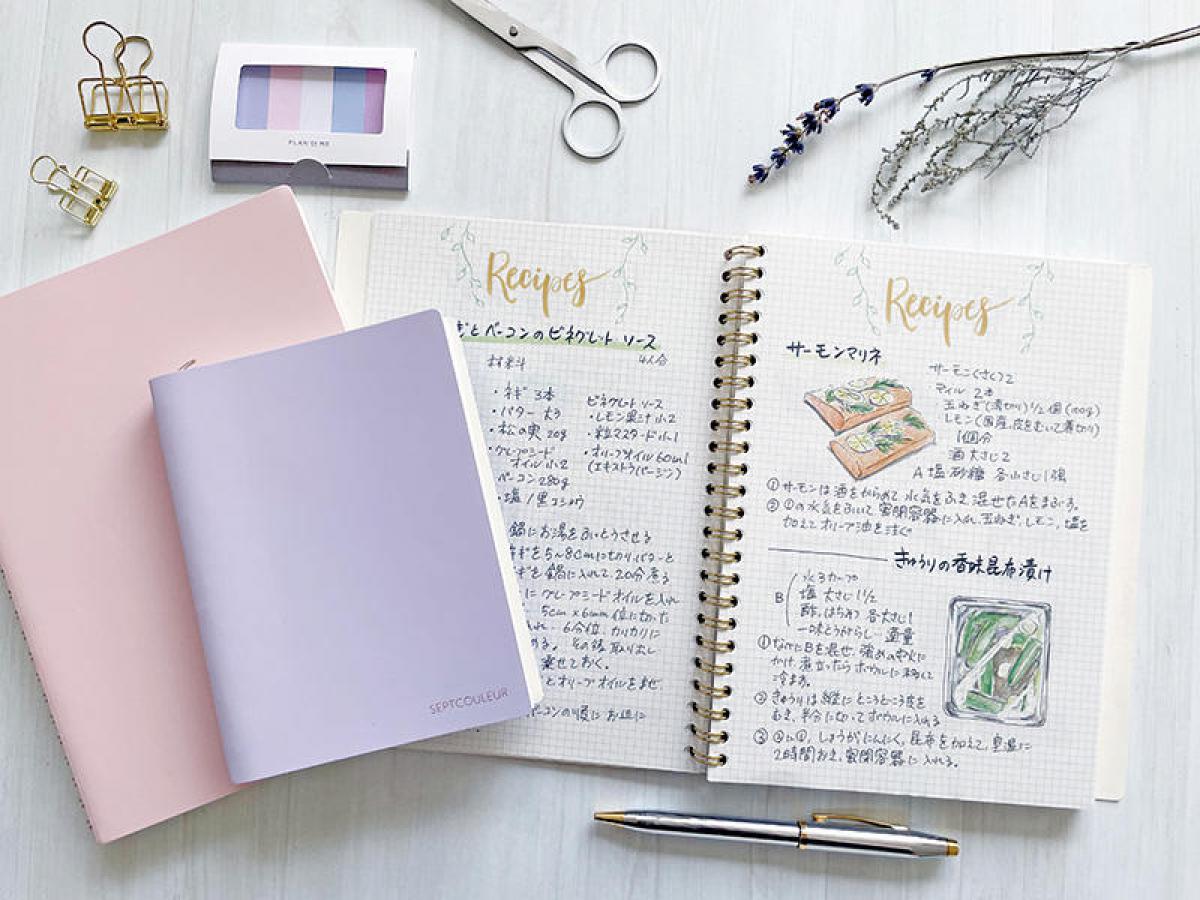 PLAN DE ME
SEPTCOULEUR
Recipes
ぎとベーコンのビネグレットソース
材料 4人分
・ネギ 3本
・バター 大3
・松の実 20g
・グレープシード
オイル 小2
ベーコン 280g
・塩/黒コショウ
ビネグレットソース
・レモン果汁 小2
・粒マスタード 小1
・オリーブオイル 60ml
(エキストラバージン)
鍋にお湯をふっとうさせる
ぎを5~8cmに切り、バターと
ぎを鍋に入れて、20分煮る
にグレープシードオイルを入れ
5cm×6mm位に切った
入れ 6分位、カリカリに
める。その後取り出し
乗せておく。
とオリーブオイルをまぜ
ベーコンの順にお皿に
Recipes
サーモンマリネ
サーモン(さく)2
ディル 2本
玉ねぎ(薄切り)1/2個(100g)
レモン(国産、皮をむいて薄切り)
1個分
酒 大さじ2
A 塩 砂糖 各小さじ1強
①サーモンは酒をからめて水気をふき混ぜたAをまぶす。
②①の水気をふいて、密閉容器に入れ、玉ねぎ、レモン、塩を
加えてオリーブ油を注ぐ
きゅうりの香味昆布漬け
B
水 3カップ
塩 大さじ1 1/2
酢、はちみつ 各大さじ1
一味とうがらし 適量
①なべにBを混ぜ、強めの中火に
かけ、煮立ったらボウルに移して
冷ます。
②きゅうりは縦にところどころ皮を
むき、半分に切ってボウルに入れる
③②に、しょうがにんにく、昆布を加えて、室温に
2時間おき、密閉容器に入れる。